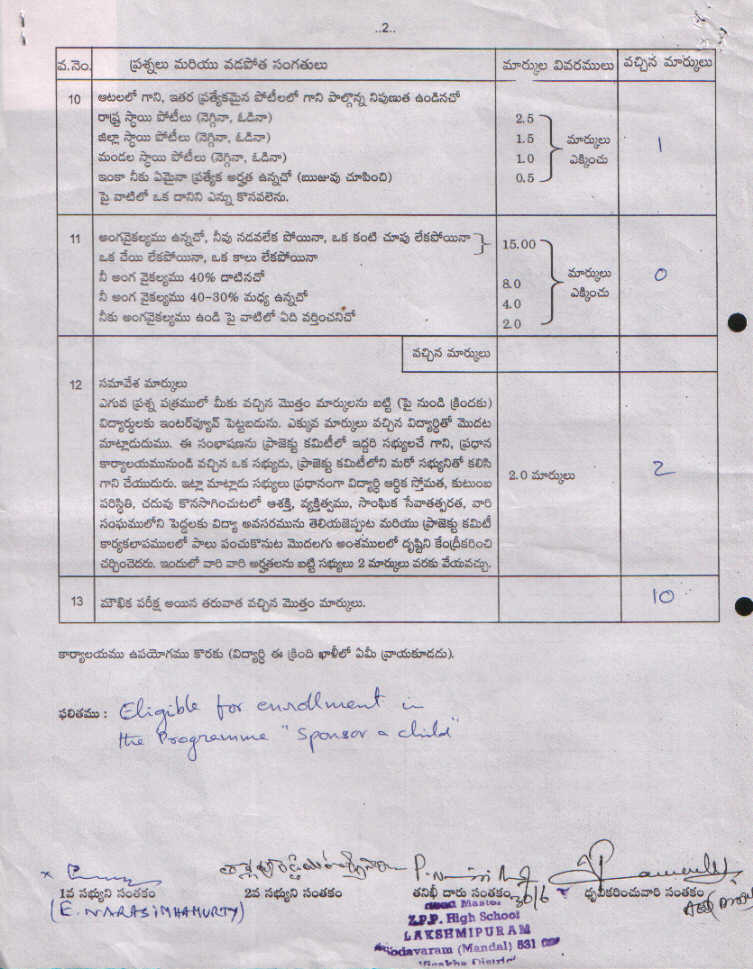 ..2..
వ.నెం. ప్రశ్నలు మరియు వడపోత సంగతులు మార్కుల వివరములు వచ్చిన మార్కులు
10 ఆటలలో గాని, ఇతర ప్రత్యేకమైన పోటీలలో గాని పాల్గొన్న నిపుణుత ఉండినచో
రాష్ట్ర స్థాయి పోటీలు (నెగ్గినా, ఓడినా) 2.5
జిల్లా స్థాయి పోటీలు (నెగ్గినా, ఓడినా) 1.5 మార్కులు 1
మండల స్థాయి పోటీలు (నెగ్గినా, ఓడినా) 1.0 ఎక్కించు
ఇంకా నీకు ఏమైనా ప్రత్యేక అర్హత ఉన్నచో (ఋజువు చూపించి) 0.5
పై వాటిలో ఒక దానిని ఎన్ను కొనవలెను.
11 అంగవైకల్యము ఉన్నచో, నీవు నడవలేక పోయినా, ఒక కంటి చూపు లేకపోయినా 15.00
ఒక చేయి లేకపోయినా, ఒక కాలు లేకపోయినా
నీ అంగ వైకల్యము 40% దాటినచో 8.0 మార్కులు 0
నీ అంగ వైకల్యము 40-30% మధ్య ఉన్నచో 4.0 ఎక్కించు
నీకు అంగవైకల్యము ఉండి పై వాటిలో ఏది వర్తించనిచో 2.0
వచ్చిన మార్కులు
12 సమావేశ మార్కులు
ఎగువ ప్రశ్న పత్రములో మీకు వచ్చిన మొత్తం మార్కులను బట్టి (పై నుండి క్రిందకు)
విద్యార్థులకు ఇంటర్‌వ్యూవ్ పెట్టబడును. ఎక్కువ మార్కులు వచ్చిన విద్యార్థితో మొదట
మాట్లాడుదుము. ఈ సంభాషణను ప్రాజెక్టు కమిటీలో ఇద్దరి సభ్యులచే గాని, ప్రధాన
కార్యాలయమునుండి వచ్చిన ఒక సభ్యుడు, ప్రాజెక్టు కమిటీలోని మరో సభ్యునితో కలిసి
గాని చేయుదురు. ఇట్లా మాట్లాడు సభ్యులు ప్రధానంగా విద్యార్థి ఆర్థిక స్తోమత, కుటుంబ 2.0 మార్కులు 2
పరిస్థితి, చదువు కొనసాగించుటలో ఆశక్తి, వ్యక్తిత్వము, సాంఘిక సేవాతత్పరత, వారి
సంఘములోని పెద్దలకు విద్యా అవసరమును తెలియజెప్పుట మరియు ప్రాజెక్టు కమిటీ
కార్యకలాపములలో పాలు పంచుకొనుట మొదలగు అంశములలో దృష్టిని కేంద్రీకరించి
చర్చించెదరు. ఇందులో వారి వారి అర్హతలను బట్టి సభ్యులు 2 మార్కులు వరకు వేయవచ్చు.
13 మౌఖిక పరీక్ష అయిన తరువాత వచ్చిన మొత్తం మార్కులు. 10
కార్యాలయము ఉపయోగము కొరకు (విద్యార్థి ఈ క్రింది ఖాళీలో ఏమీ వ్రాయకూడదు).
ఫలితము : Eligible for enrollment in
the Programme "Sponsor a child"
1వ సభ్యుని సంతకం 2వ సభ్యుని సంతకం తనిఖీ దారు సంతకం ధృవీకరించువారి సంతకం
(E. NARASIMHAMURTY) 30/6
Head Master
Z.P.P. High School
LAKSHMIPURAM
(Mandal) 531